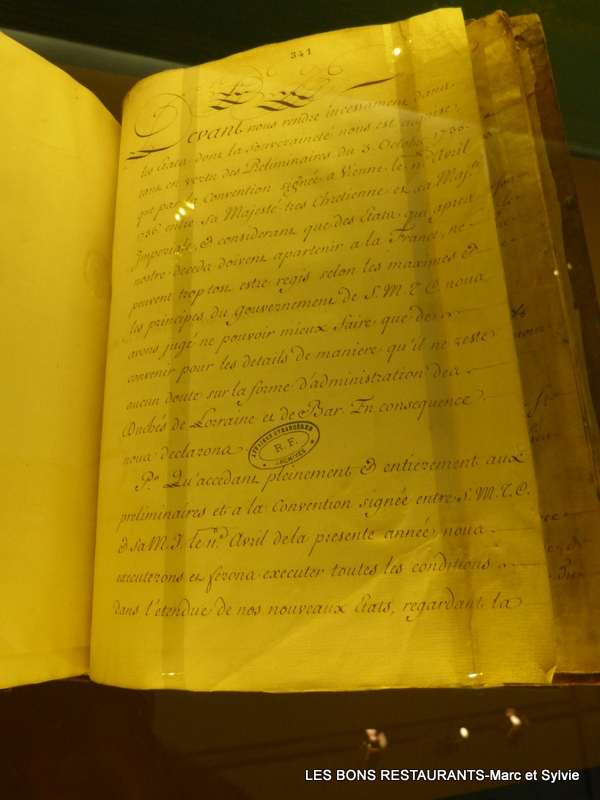 341
Devant nous rendre incessament dans
les Etats dont la Souveraineté nous est acquise
tant en vertu des Preliminaires du 3. Octobre 1735.
que par la Convention signée a Vienne le 11.e d'Avril
1736. entre sa Majesté tres Chretienne et sa Maj.té
Imperiale, & considerant que des Etats qui apres
nostre deceda doivent apartenir a la France, ne
peuvent trop tost estre regis selon les maximes &
les principes du gouvernement de S. M. T. C. nous
avons jugé ne pouvoir mieux faire que de
convenir pour les details de maniere qu'il ne reste
aucun doute sur la forme d'administration des
Duchés de Lorraine et de Bar. En consequence
nous declarons
AFFAIRES ETRANGERES
R.F.
ARCHIVES
P.o Qu'accedant pleinement & entierement aux
preliminaires et a la Convention signée entre S. M. T. C.
& sa M. I. le 11.e Avril de la presente année nous
executerons et ferons executer toutes les conditions
dans l'étendue de nos nouveaux Etats, regardant la
LES BONS RESTAURANTS-Marc et Sylvie